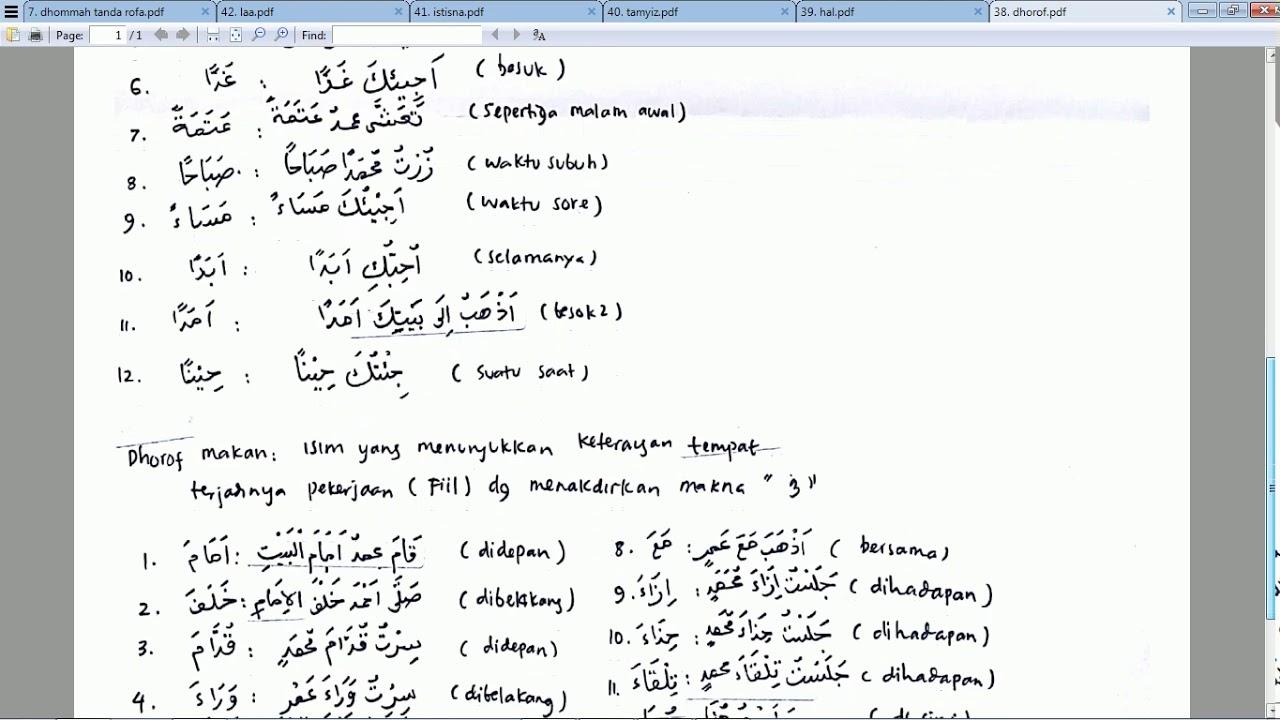 7. dhommah tanda rofa.pdf 42. laa.pdf 41. istisna.pdf 40. tamyiz.pdf 39. hal.pdf 38. dhorof.pdf
Page: 1 /1 Find:
6. غَدًّا : اَجِيئُكَ غَدًّا (besuk)
7. عَتَمَةً : تَعَشَّى محمدٌ عَتَمَةً (sepertiga malam awal)
8. صَبَاحًا : زُرْتُ مُحَمَّدًا صَبَاحًا (waktu subuh)
9. مَسَاءً : اَجِيْئُكَ مَسَاءً (waktu sore)
10. اَبَدًا : اُحِبُّكِ اَبَدًا (selamanya)
11. اَمَدًا : اَذْهَبُ اِلَى بَيْتِكَ اَمَدًا (besok2)
12. حِيْنًا : جِئْتُكَ حِيْنًا (suatu saat)
Dhorof makan: isim yang menunjukkan keterangan tempat
terjadinya pekerjaan (Fiil) dg menakdirkan makna "في"
1. اَمَامَ : قَامَ محمدٌ اَمَامَ الْبَيْتِ (didepan)
2. خَلْفَ : صَلَّى اَحْمَدُ خَلْفَ الاِمَامِ (dibelakang)
3. قُدَّامَ : سِرْتُ قُدَّامَ مُحَمَّدٍ (didepan)
4. وَرَاءَ : سِرْتُ وَرَاءَ (dibelakang)
8. مَعَ : اَذْهَبُ مَعَ (bersama)
9. اِزَاءَ : جَلَسْتُ اِزَاءَ مُحَمَّدٍ (dihadapan)
10. حِذَاءَ : جَلَسْتُ حِذَاءَ مُحَمَّدٍ (dihadapan)
11. تِلْقَاءَ : جَلَسْتُ تِلْقَاءَ مُحَمَّدٍ (dihadapan)